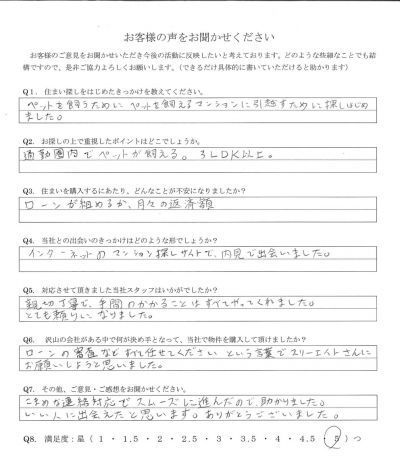 お客様の声をお聞かせください
お客様のご意見をお聞かせいただき今後の活動に反映したいと考えております。どのような些細なことでも結
構ですので、是非ご協力よろしくお願いします。(できるだけ具体的に書いていただけると助かります)
Q1. 住まい探しをはじめたきっかけを教えてください。
ペットを飼うために ペットを飼えるマンションに引越すために探しはじめ
ました。
Q2. お探しの上で重視したポイントはどこでしょうか。
通勤圏内でペットが飼える。3LDK以上。
Q3. 住まいを購入するにあたり、どんなことが不安になりましたか?
ローンが組めるか、月々の返済額
Q4. 当社との出会いのきっかけはどのような形でしょうか?
インターネットのマンション探しサイトで、内見で出会いました。
Q5. 対応させて頂きました当社スタッフはいかがでしたか?
親切丁寧で、手間のかかることはすべてやってくれました。
とても頼りになりました。
Q6. 沢山の会社がある中で何が決め手となって、当社で物件を購入して頂けましたか?
ローンの審査など すべて任せてください という言葉でスリーエイトさんに
お願いしようと思いました。
Q7. その他、ご意見・ご感想をお聞かせください。
こまめな連絡対応でスムーズに進んだので、助かりました。
いい人に出会えたと思います。ありがとうございました。
Q8. 満足度:星(1・1.5・2・2.5・3・3.5・4・4.5・5)つ